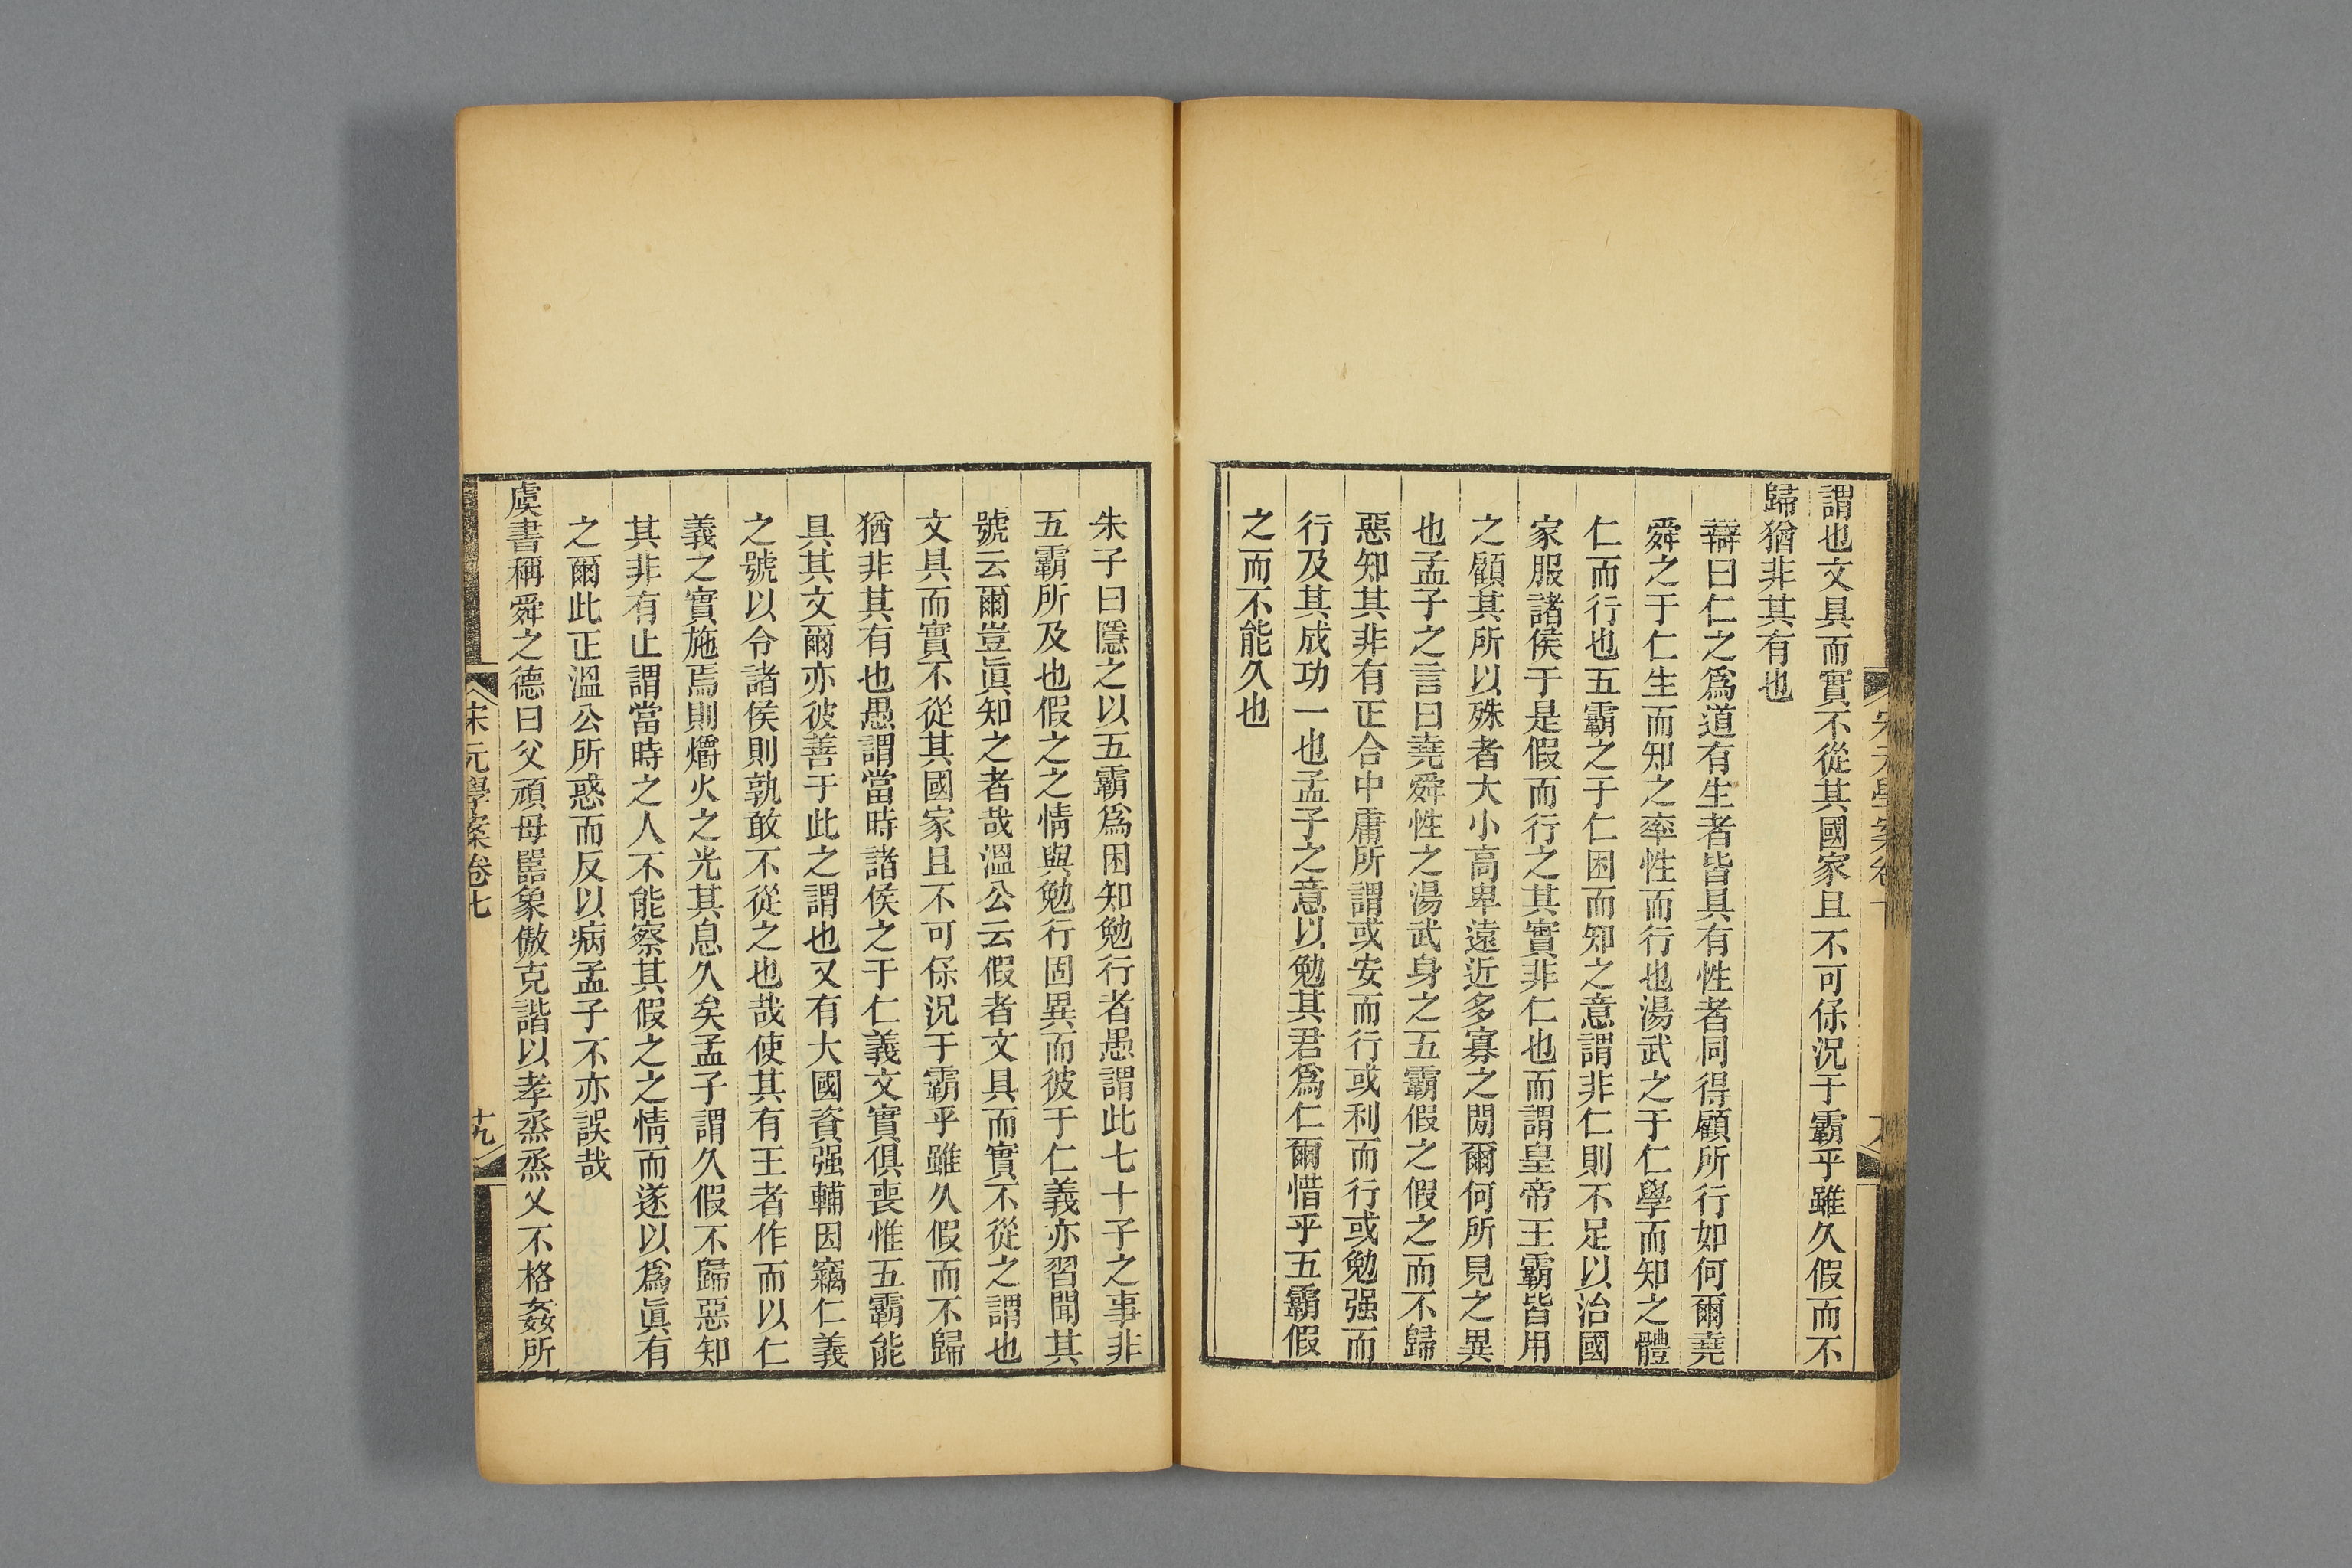 謂也文具而實不從其國家且不可保況于霸乎雖久假而不
歸猶非其有也
辯曰仁之爲道有生者皆具有性者同得顧所行如何爾堯
舜之于仁生而知之率性而行也湯武之于仁學而知之體
仁而行也五霸之于仁困而知之意謂非仁則不足以治國
家服諸侯于是假而行之其實非仁也而謂皇帝王霸皆用
之顧其所以殊者大小高卑遠近多寡之閒爾何所見之異
也孟子之言曰堯舜性之湯武身之五霸假之假之而不歸
惡知其非有正合中庸所謂或安而行或利而行或勉强而
行及其成功一也孟子之意以勉其君爲仁爾惜乎五霸假
之而不能久也
朱子曰隱之以五霸爲困知勉行者愚謂此七十子之事非
五霸所及也假之之情與勉行固異而彼于仁義亦習聞其
號云爾豈眞知之者哉溫公云假者文具而實不從之謂也
文具而實不從其國家且不可保況于霸乎雖久假而不歸
猶非其有也愚謂當時諸侯之于仁義文實俱喪惟五霸能
具其文爾亦彼善于此之謂也又有大國資强輔因竊仁義
之號以令諸侯則孰敢不從之也哉使其有王者作而以仁
義之實施焉則爝火之光其息久矣孟子謂久假不歸惡知
其非有止謂當時之人不能察其假之之情而遂以爲眞有
之爾此正溫公所惑而反以病孟子不亦誤哉
虞書稱舜之德曰父頑母嚚象傲克諧以孝烝烝乂不格姦所
宋元學案卷七
十九